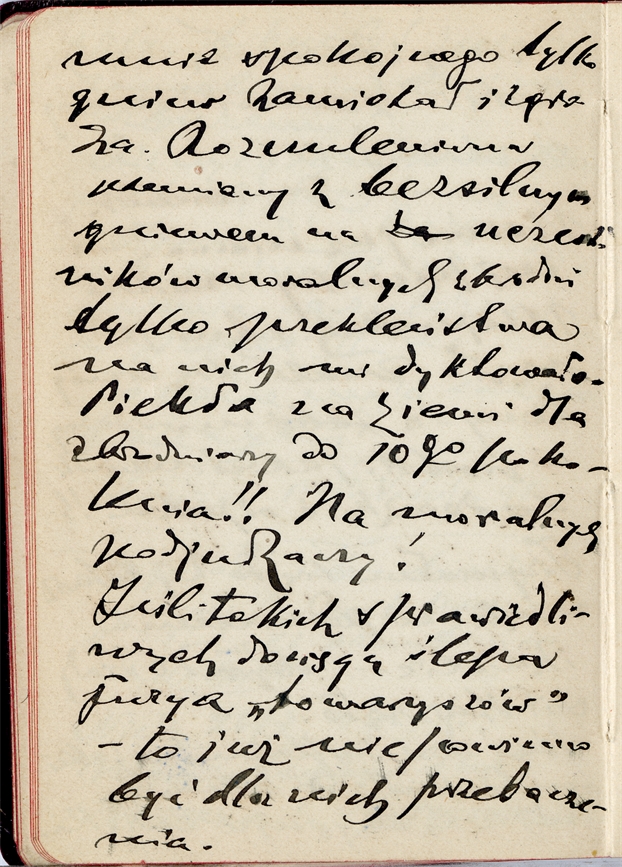 mniż spokojnego tylko
gniew
za. Rozczulenie
płomienny z bezsilnym
gniewem na uczest-
ników moralnych zbrodni
tylko przekleństwa
na nich mi dyktowało.
Piekła na ziemi dla
zbrodniarzy do 10go poko-
lenia!! Na moralnych
podjudzaczy!
I sprawiedli-
wych dosięgą ślepa
furya „towarzyszów"
– to już nie powinno
być dla nich przebacze-
nia.